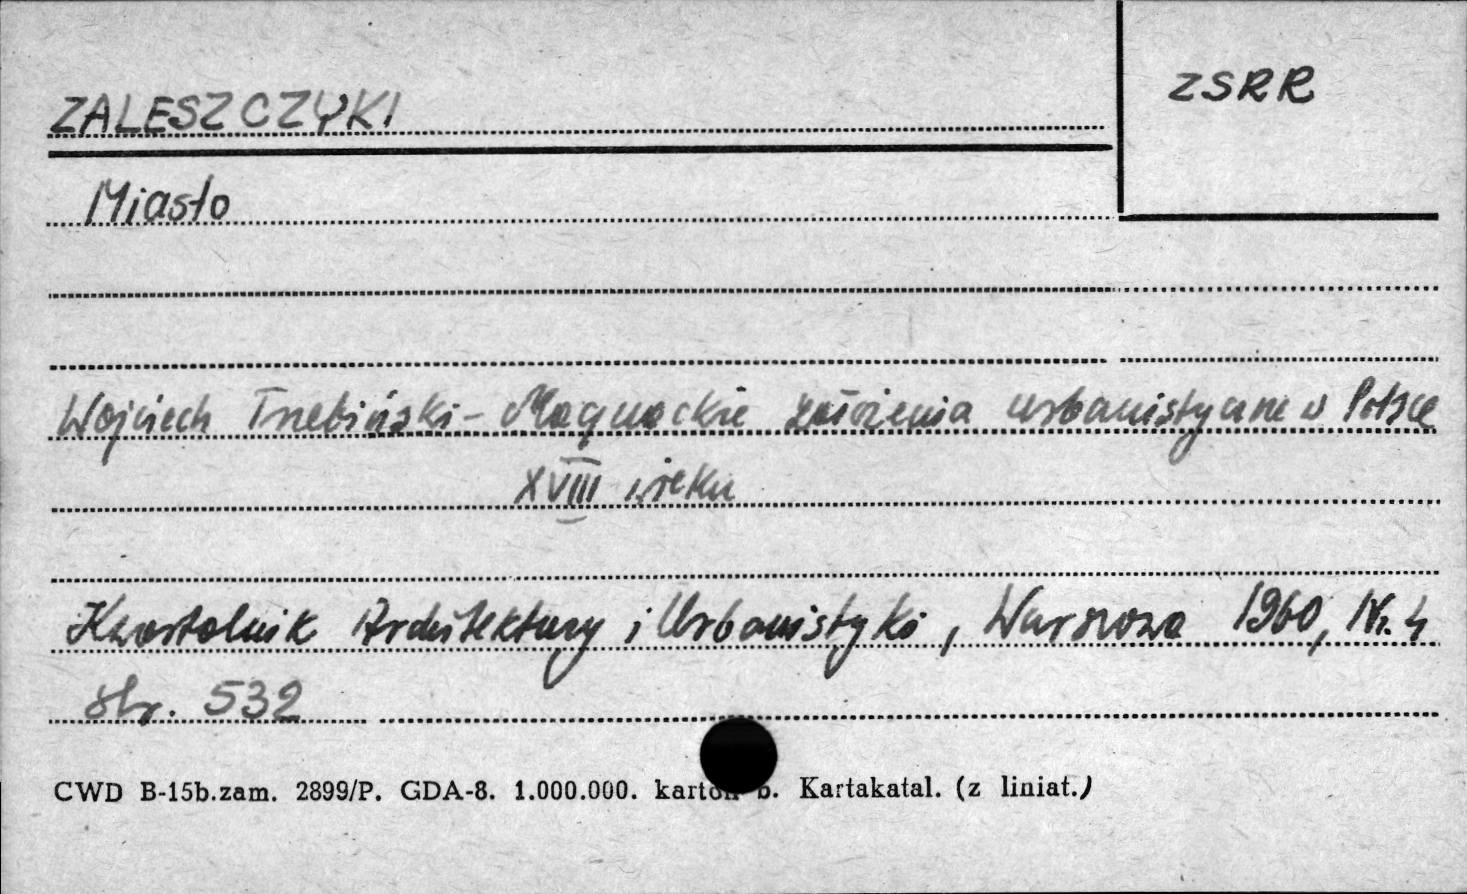 ZALESZCZYKI
ZSRR
Miasto
Wojciech Trzebiński - Magnackie założenia urbanistyczne w Polsce
XVIII wieku
Kwartalnik Architektury i Urbanistyki, Warszawa 1960, Nr. 4
str. 532
CWD B-15b.zam. 2899/P. GDA-8. 1.000.000. karton b. Kartakatal. (z liniat.)